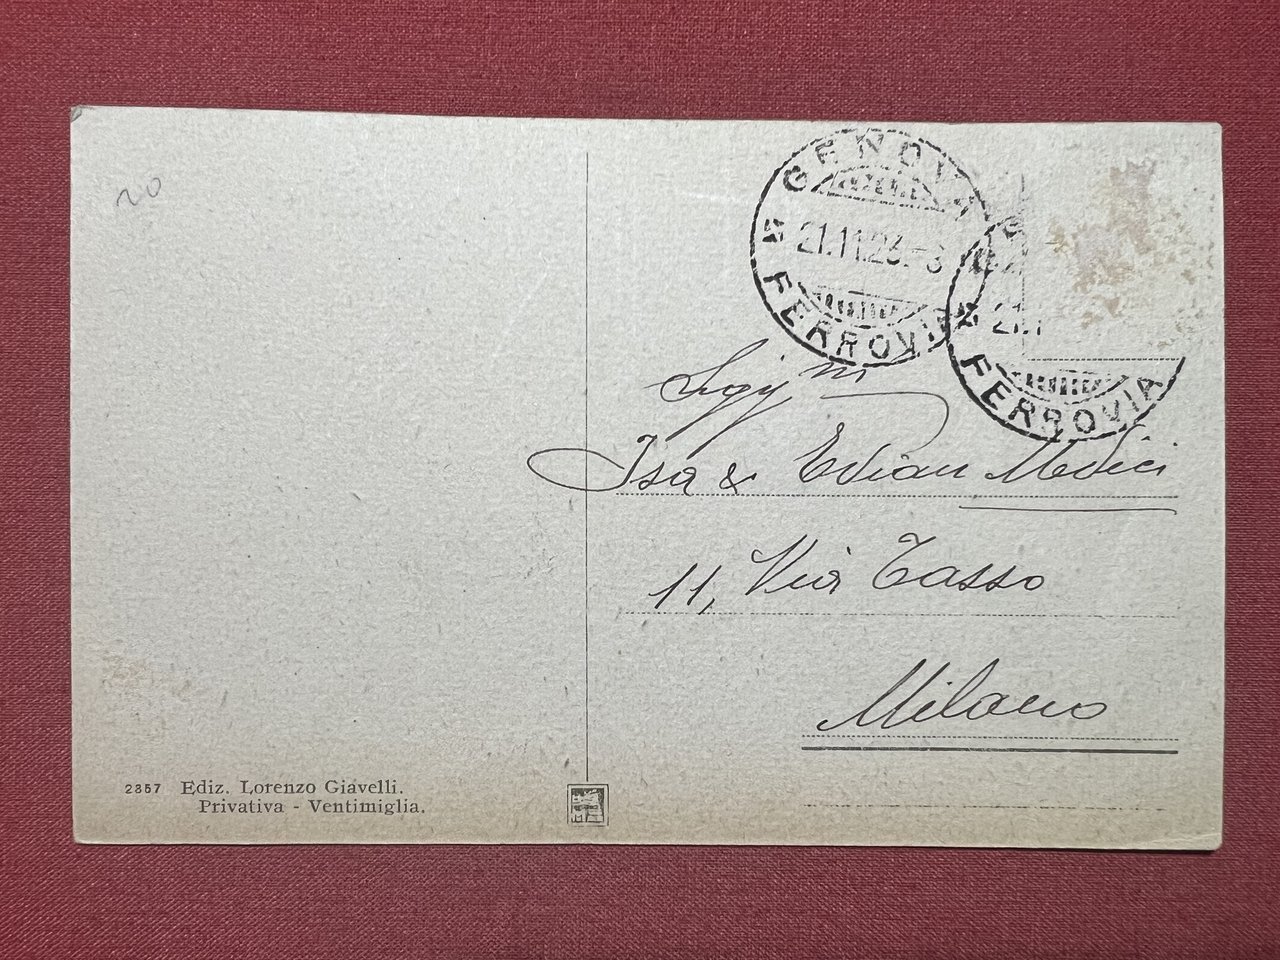 20
GENOVA
21.11.23.-8
FERROVIA
21.1
FERROVIA
Isa & Edian Medici
11, Via Tasso
Milano
2357 Ediz. Lorenzo Giavelli.
Privativa - Ventimiglia.